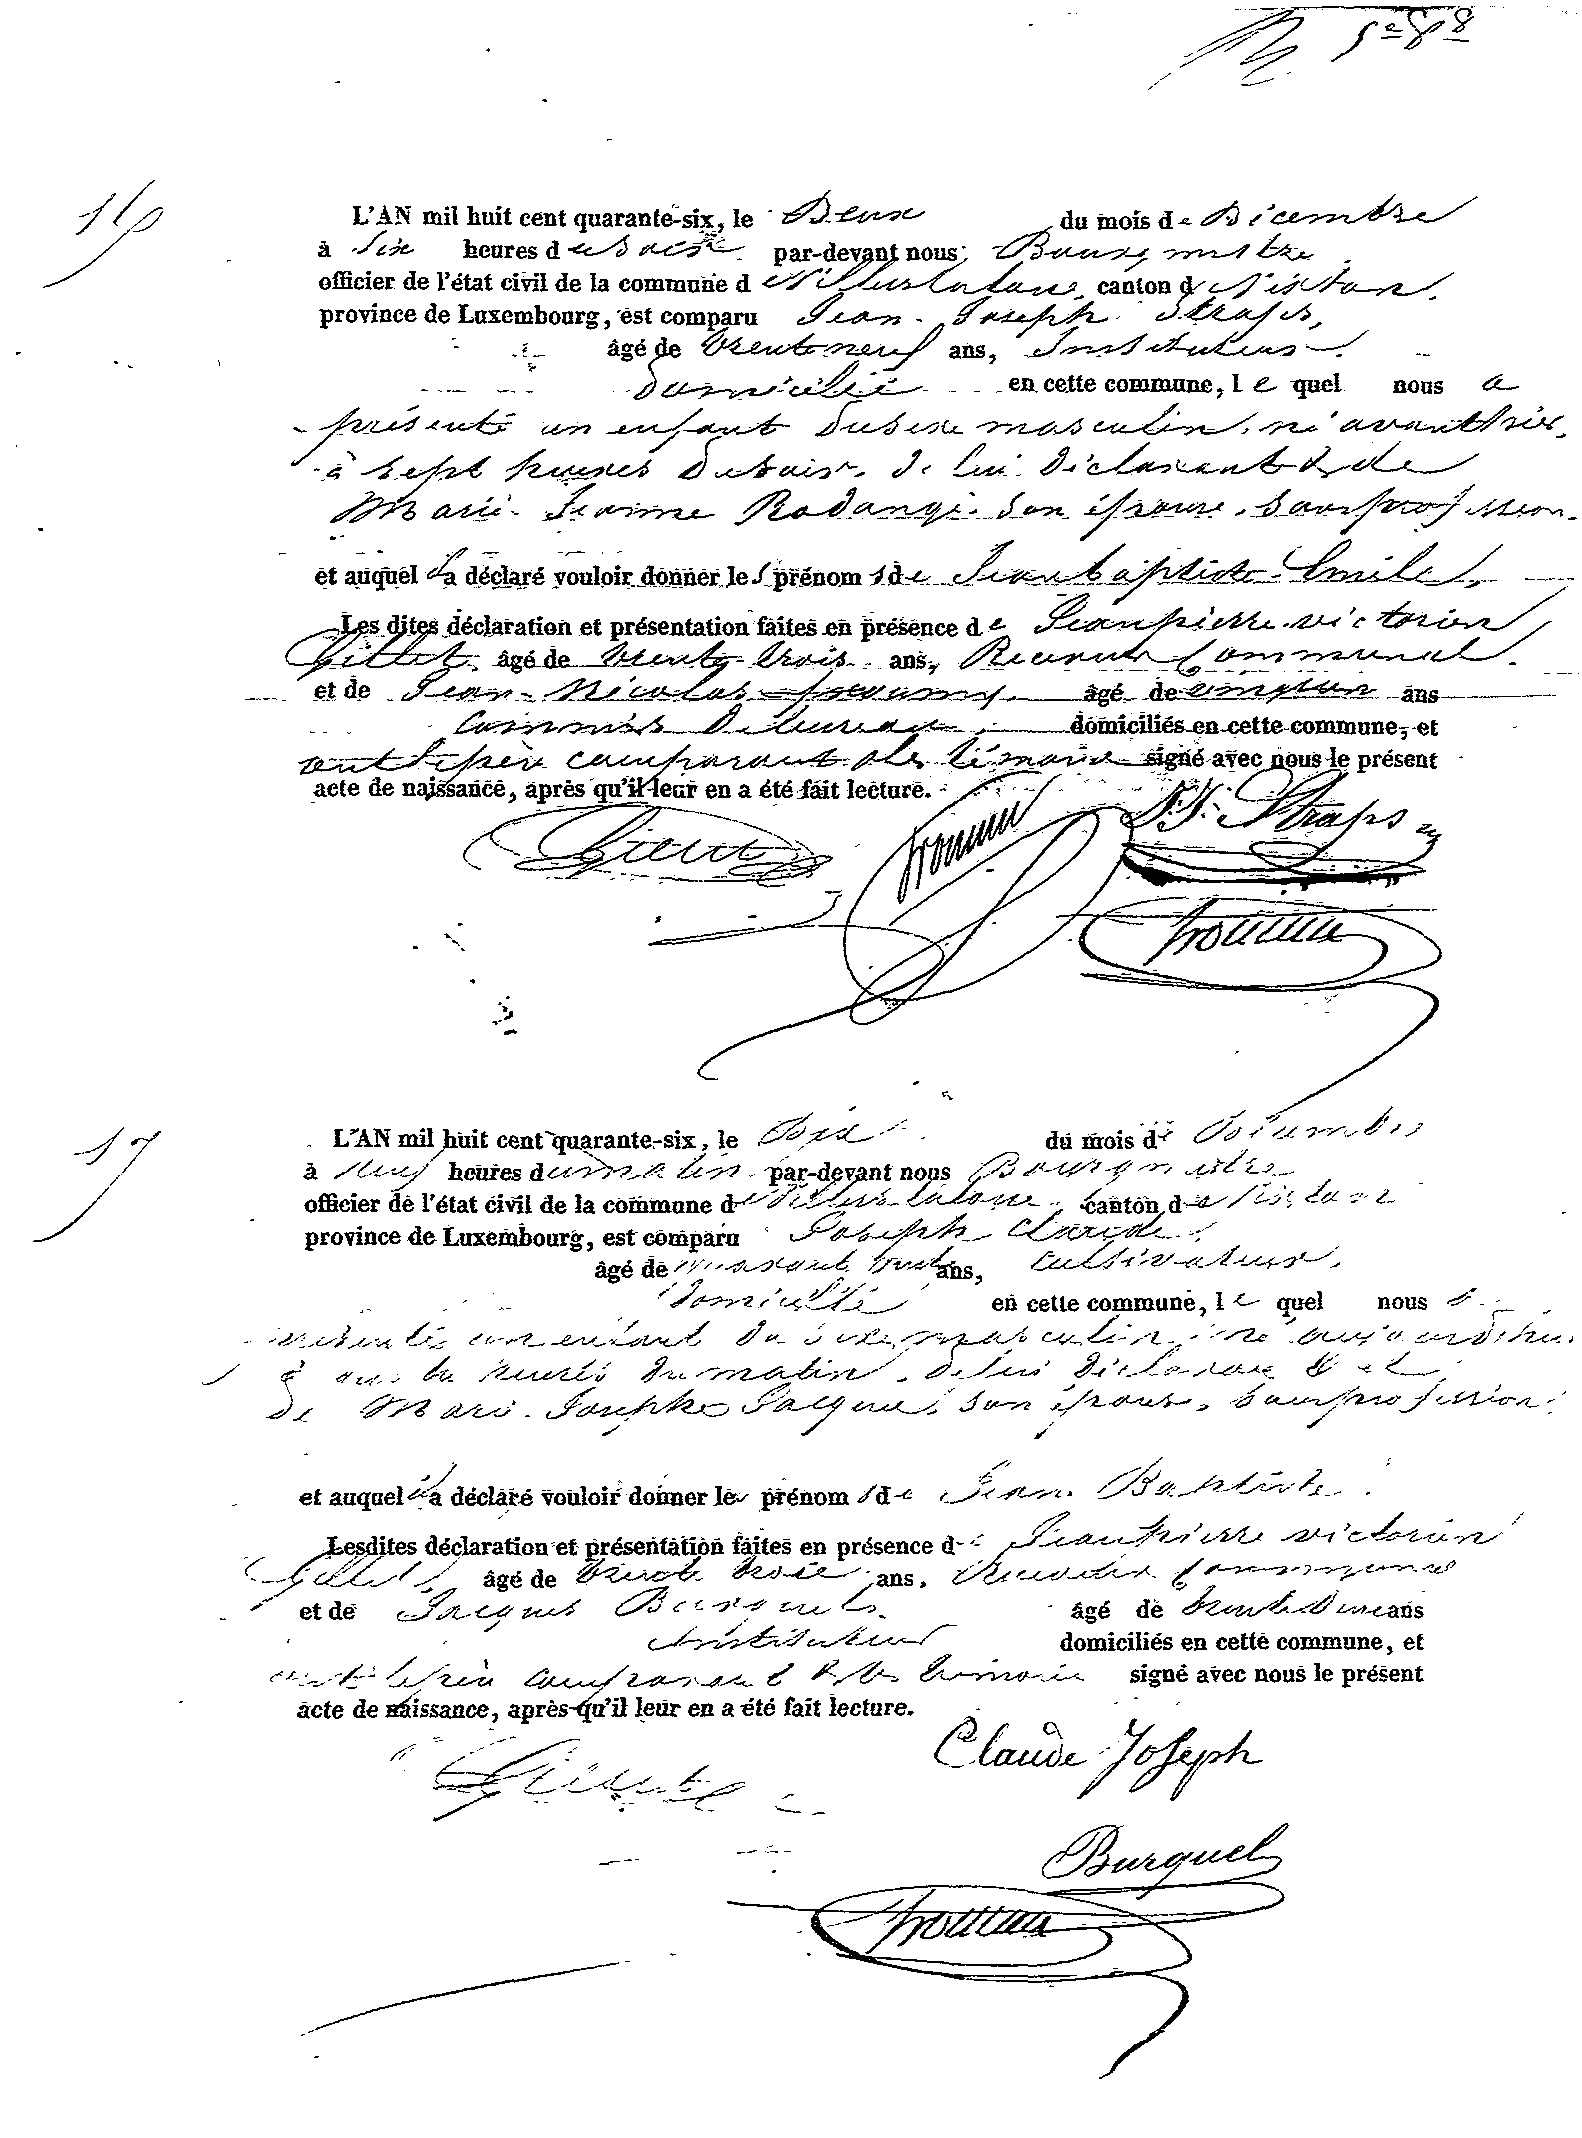 5e 88
16
L'AN mil huit cent quarante-six, le Deux du mois de Décembre
à Six heures du Soir par-devant nous Bourgmestre
officier de l'état civil de la commune de Villerslaloue, canton de Virton.
province de Luxembourg, est comparu Jean-Joseph Straps,
âgé de trente neuf ans, Instituteur
domicilié en cette commune, lequel nous a
présenté un enfant du sexe masculin, né avant hier,
à sept heures du soir, de lui déclarant & de
Marie-Jeanne Rodange, son épouse, sans profession.
et auquel il a déclaré vouloir donner les prénoms de Jean baptiste Emile,
Les dites déclaration et présentation faites en présence de Jean pierre victorien
Gillet, âgé de trente trois ans, Receveur Communal.
et de Jean-Nicolas âgé de vingt un ans
commis de bureau, domiciliés en cette commune, et
ont le père comparant & les témoins signé avec nous le présent
acte de naissance, après qu'il leur en a été fait lecture.
J.J. Straps
17
L'AN mil huit cent quarante-six, le Dix du mois de Décembre
à neuf heures du matin par-devant nous Bourgmestre
officier de l'état civil de la commune de Villerslaloue, canton de Virton
province de Luxembourg, est comparu Joseph Claude,
âgé de quarante ans, Cultivateur,
domicilié en cette commune, lequel nous a
présenté un enfant du sexe masculin, né aujourdhui
à heures du matin, de lui déclarant & et
de Marie-Josephe Jacques, son épouse, sans profession.
et auquel il a déclaré vouloir donner les prénoms de Jean Baptiste.
Lesdites déclaration et présentation faites en présence de Jean pierre victorien
Gillet, âgé de trente trois ans, Receveur Communal
et de Jacques Burquel, âgé de trente deux ans
Instituteur domiciliés en cette commune, et
ont le père comparant & les témoins signé avec nous le présent
acte de naissance, après qu'il leur en a été fait lecture.
Claude Joseph
Burquel